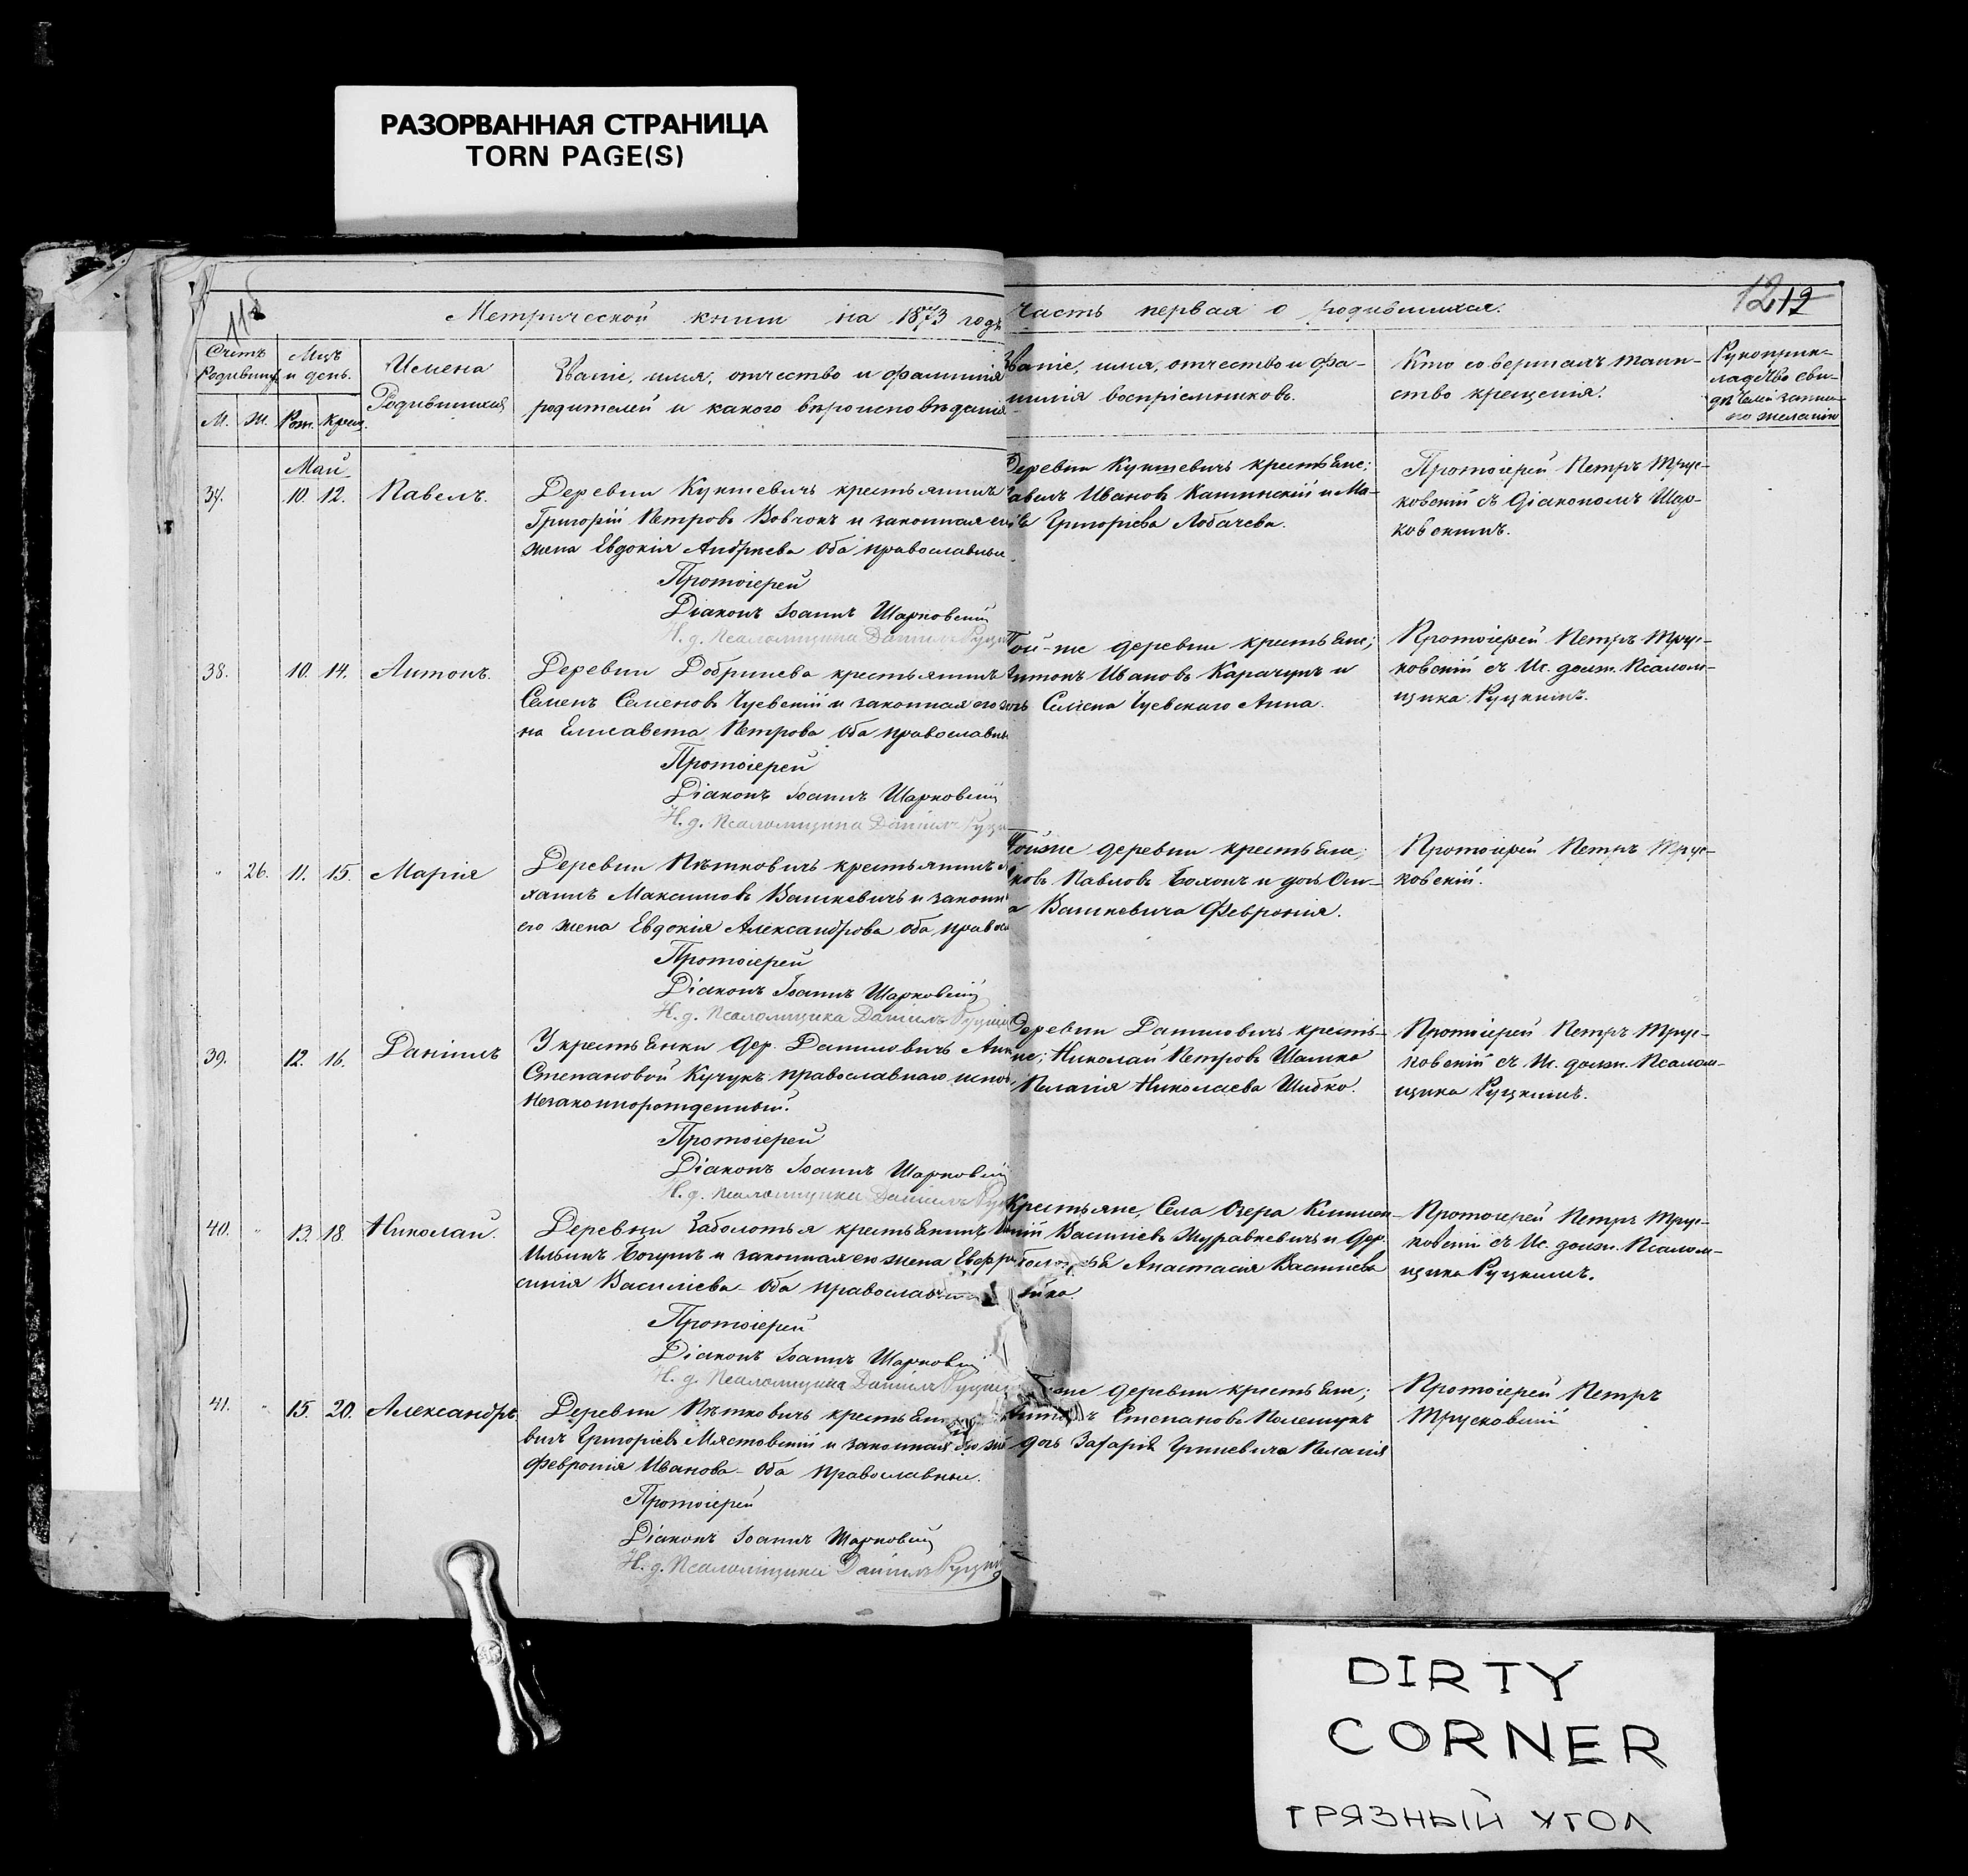 РАЗОРВАННАЯ СТРАНИЦА
TORN PAGE(S)
Метрической книги на 1873 годъ
часть первая о родившихся.
12
Счетъ Родивших.
Мцъ и день.
М. Ж. Рож. Крещ.
Имена
Родившихся
Званіе, имя, отчество и фамилія
родителей и какого вѣроисповѣданія
Званіе, имя, отчество и фа-
милія воспріемниковъ.
Кто совершалъ таин-
ство крещенія.
Рукоприк-
ладство сви-
дѣтелей записи
по желанію
Май
37. 10. 12. Павелъ.
Деревни Куктевичъ крестьянинъ
Григорій Петровъ Вовчокъ и законная его
жена Евдокія Андреева оба православные.
Протоіерей
Діаконъ Іоаннъ Шарковскій
И. д. Псаломщика Даніилъ Руцкій
Деревни Куктевичъ крестьяне;
авелъ Ивановъ Калинскій и Ма-
Григоріева Лобачева.
Протоіерей Петръ Трус-
ковскій съ Діакономъ Шар-
ковскимъ.
38. 10. 14. Антонъ.
Деревни Добринева крестьянинъ
Семенъ Семеновъ Чуевскій и законная его же-
на Елисавета Петрова оба православны
Протоіерей
Діаконъ Іоаннъ Шарковскій
И. д. Псаломщика Даніилъ Руцкій
Той-же деревни крестьяне;
Антонъ Ивановъ Карачунъ и
дочь Семена Чуевскаго Анна.
Протоіерей Петръ Трус-
ковскій съ Ис. долж. Псалом-
щика Руцкимъ.
26. 11. 15. Марія
Деревни Пѣтковичъ крестьянинъ
хаилъ Максимовъ Вашкевичъ и законн
его жена Евдокія Александрова оба правос
Протоіерей
Діаконъ Іоаннъ Шарковскій
И. д. Псаломщика Даніилъ Руцкій
Тойже деревни крестьяне;
ковъ Павловъ Болонъ и дочь Оси-
а Вашкевича Февронія.
Протоіерей Петръ Трус-
ковскій.
39. 12. 16. Даніилъ
У крестьянки дер. Даниловичъ Анны
Степановой Кучукъ православнаго испов.
Незаконнорожденный.
Протоіерей
Діаконъ Іоаннъ Шарковскій
И. д. Псаломщика Даніилъ Руцкій
Деревни Даниловичъ крестья-
не; Николай Петровъ Шашко
Пелагія Николаева Шибко.
Протоіерей Петръ Трус-
ковскій съ Ис. долж. Псалом-
щика Руцкимъ.
40. 13. 18. Николай.
Деревни Заболотья крестьянинъ
Ильинъ Богунъ и законная его жена Евфро
синія Василіева оба православные
Протоіерей
Діаконъ Іоаннъ Шарковскій
И. д. Псаломщика Даніилъ Руцкій
Крестьяне, Села Озера Климен-
тій Василіевъ Журавкевичъ и дер.
Анастасія Василіева
Протоіерей Петръ Трус-
ковскій съ Ис. долж. Псалом-
щика Руцкимъ.
41. 15. 20. Александръ
Деревни Пѣтковичъ крестьянинъ
вилъ Григоріевъ Мястовскій и законная его же
Февронія Иванова оба православные.
Протоіерей
Діаконъ Іоаннъ Шарковскій
И. д. Псаломщика Даніилъ Руцкій
деревни крестьяне;
Степановъ Полещукъ
дочь Захарія Гриневича Пелагія
Протоіерей Петръ
Трусковскій
DIRTY
CORNER
ГРЯЗНЫЙ УГОЛ